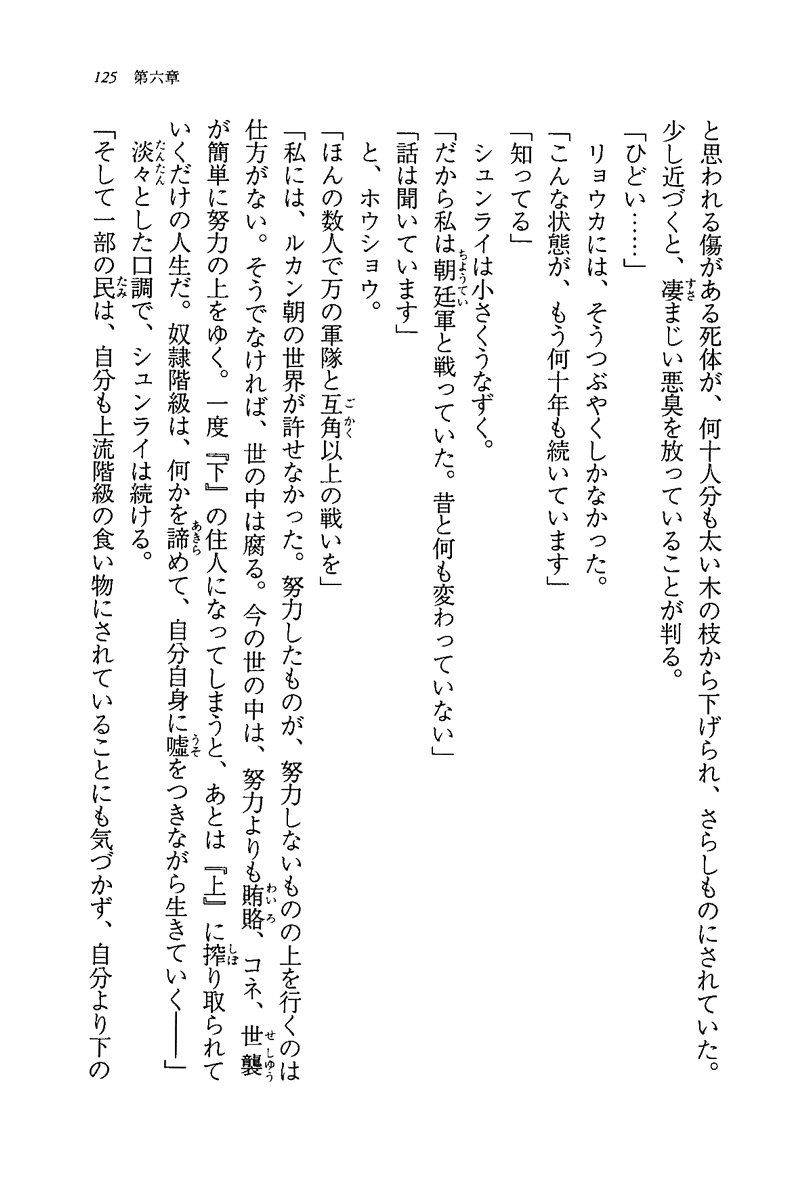 125 第六章
と思われる傷がある死体が、何十人分も太い木の枝から下げられ、さらしものにされていた。
少し近づくと、凄まじい悪臭を放っていることが判る。
「ひどい……」
リョウカには、そうつぶやくしかなかった。
「こんな状態が、もう何十年も続いています」
「知ってる」
シュンライは小さくうなずく。
「だから私は朝廷軍と戦っていた。昔と何も変わっていない」
「話は聞いています」
と、ホウショウ。
「ほんの数人で万の軍隊と互角以上の戦いを」
「私には、ルカン朝の世界が許せなかった。努力したものが、努力しないものの上を行くのは
仕方がない。そうでなければ、世の中は腐る。今の世の中は、努力よりも賄賂、コネ、世襲
が簡単に努力の上をゆく。一度『下』の住人になってしまうと、あとは『上』に搾り取られて
いくだけの人生だ。奴隷階級は、何かを諦めて、自分自身に嘘をつきながら生きていく――」
淡々とした口調で、シュンライは続ける。
「そして一部の民は、自分も上流階級の食い物にされていることにも気づかず、自分より下の